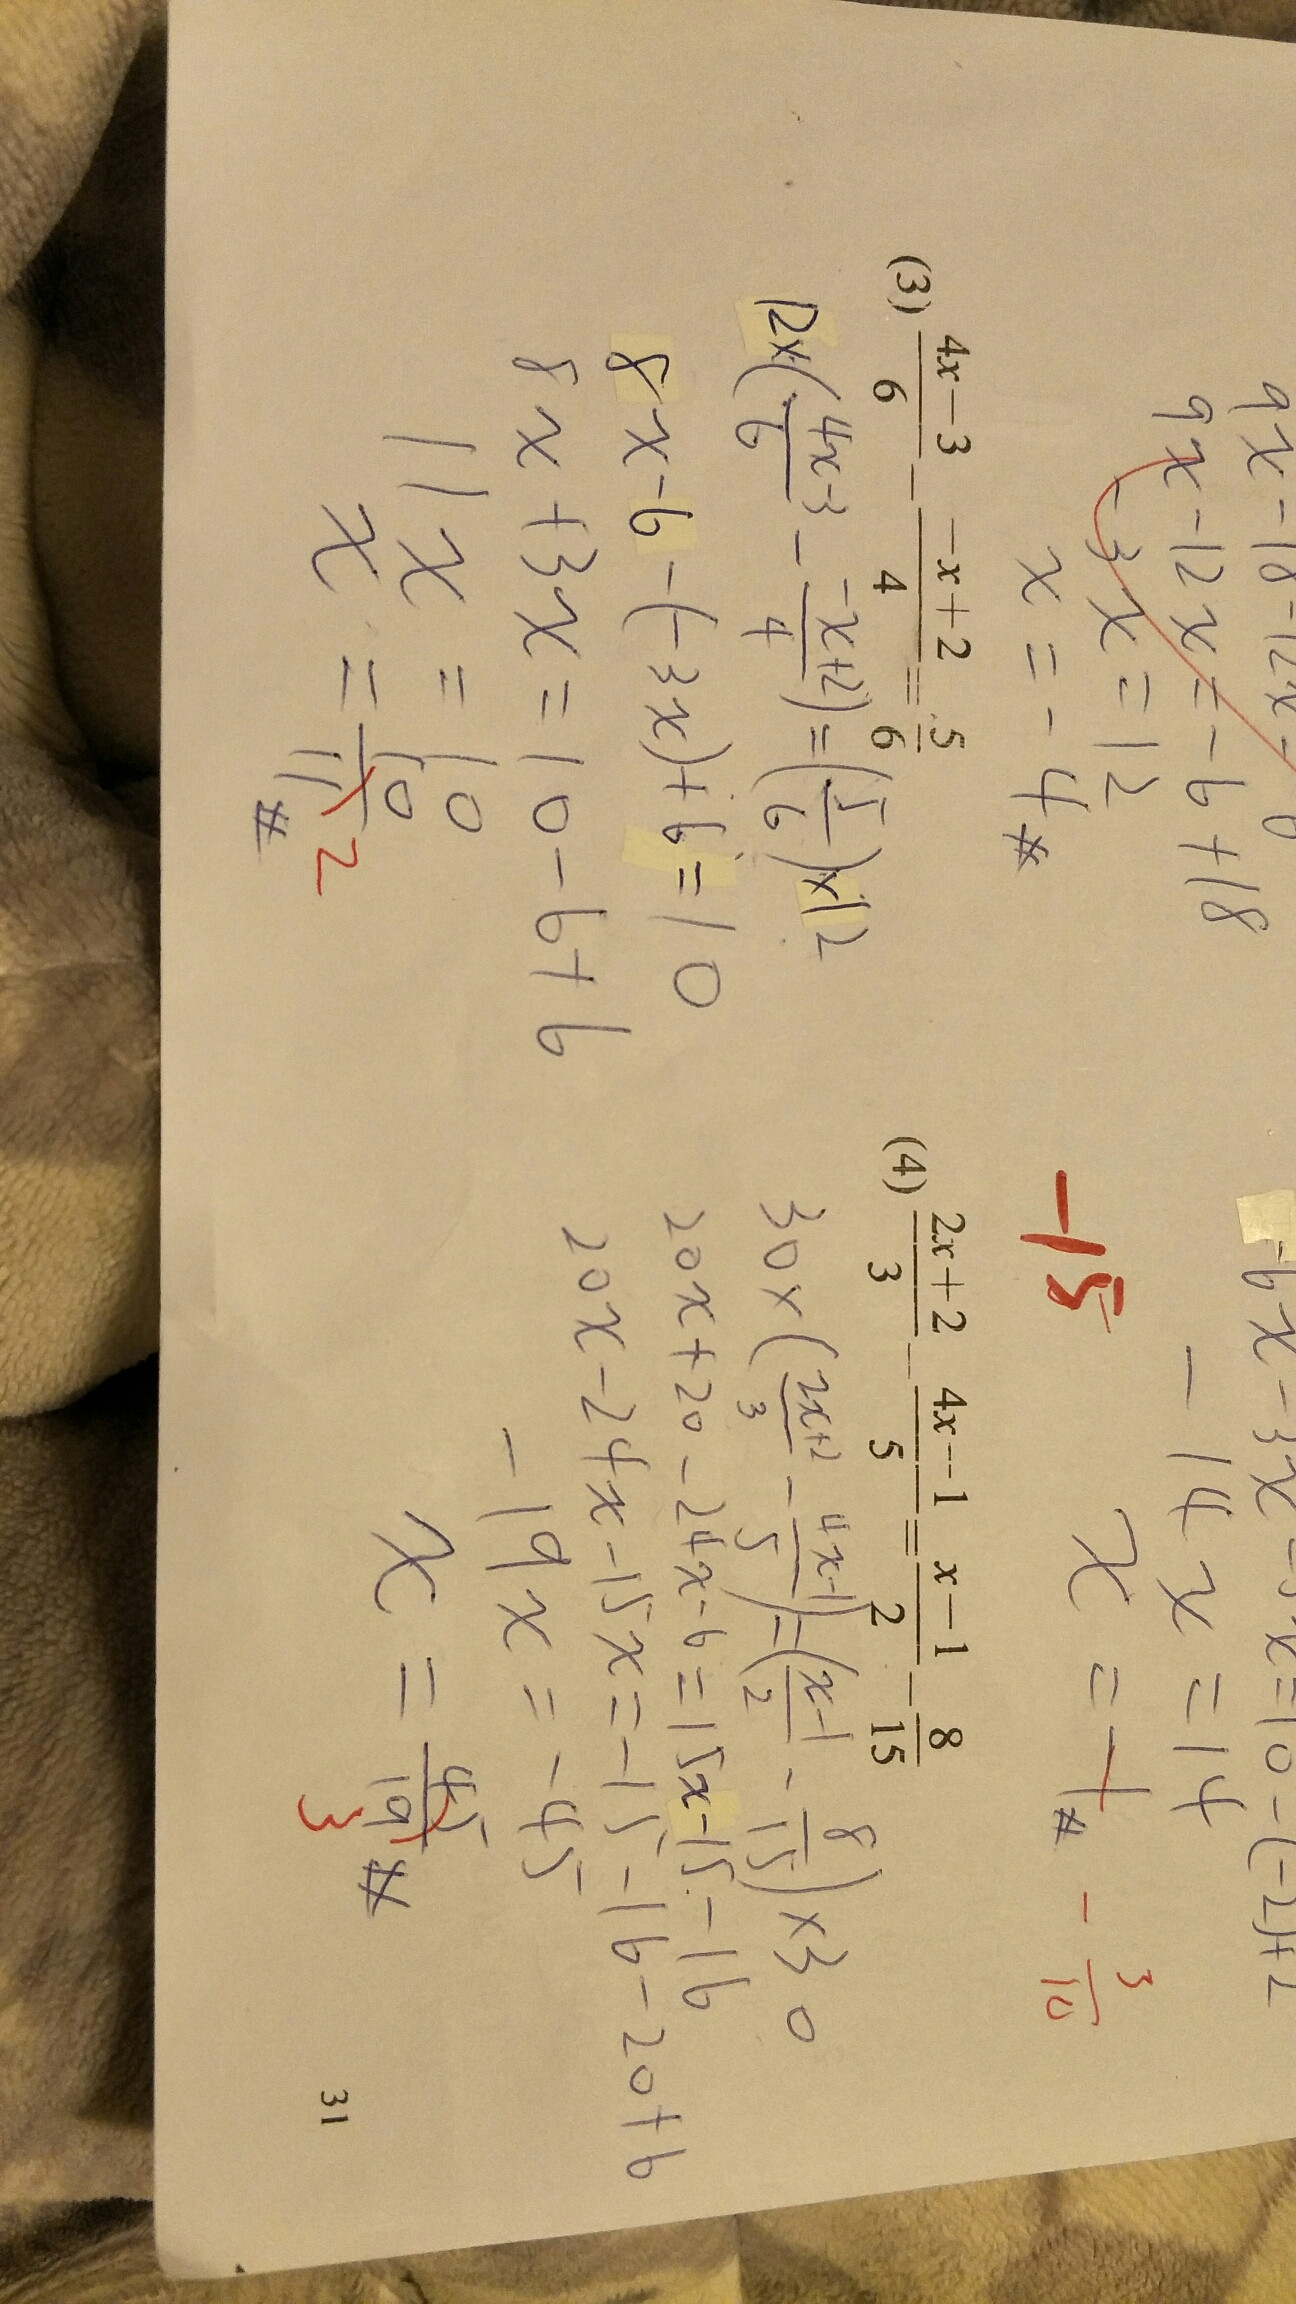 9x-18-12x
9x-12x=-6+18
-3x=12
x=-4#
(3) \frac{4x-3}{6} - \frac{-x+2}{4} = \frac{5}{6}
12×(\frac{4x-3}{6} - \frac{-x+2}{4})=(\frac{5}{6})×12
8x-6-(-3x)+6=10
8x+3x=10-6+6
11x=10
x=\frac{10}{11}#
2
-6x-3x-5x=10-(-2)+2
-14x=14
x=-1#
-\frac{3}{10}
-15
(4) \frac{2x+2}{3} - \frac{4x-1}{5} = \frac{x-1}{2} - \frac{8}{15}
30×(\frac{2x+2}{3} - \frac{4x-1}{5})=(\frac{x-1}{2} - \frac{8}{15})×30
20x+20-24x-6=15x-15-16
20x-24x-15x=-15-16-20+6
-19x=-45
x=\frac{45}{19}#
3
31